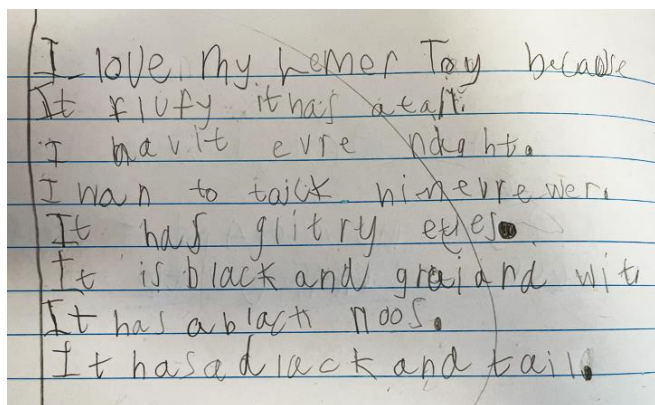 I love my lemer Toy because
It flufy it has a tail.
I havit evre ndght.
I wan to taick himevre wer.
It has glitry eyes.
It is black and graiand wit
It has a black noos.
It has adlack and tail.